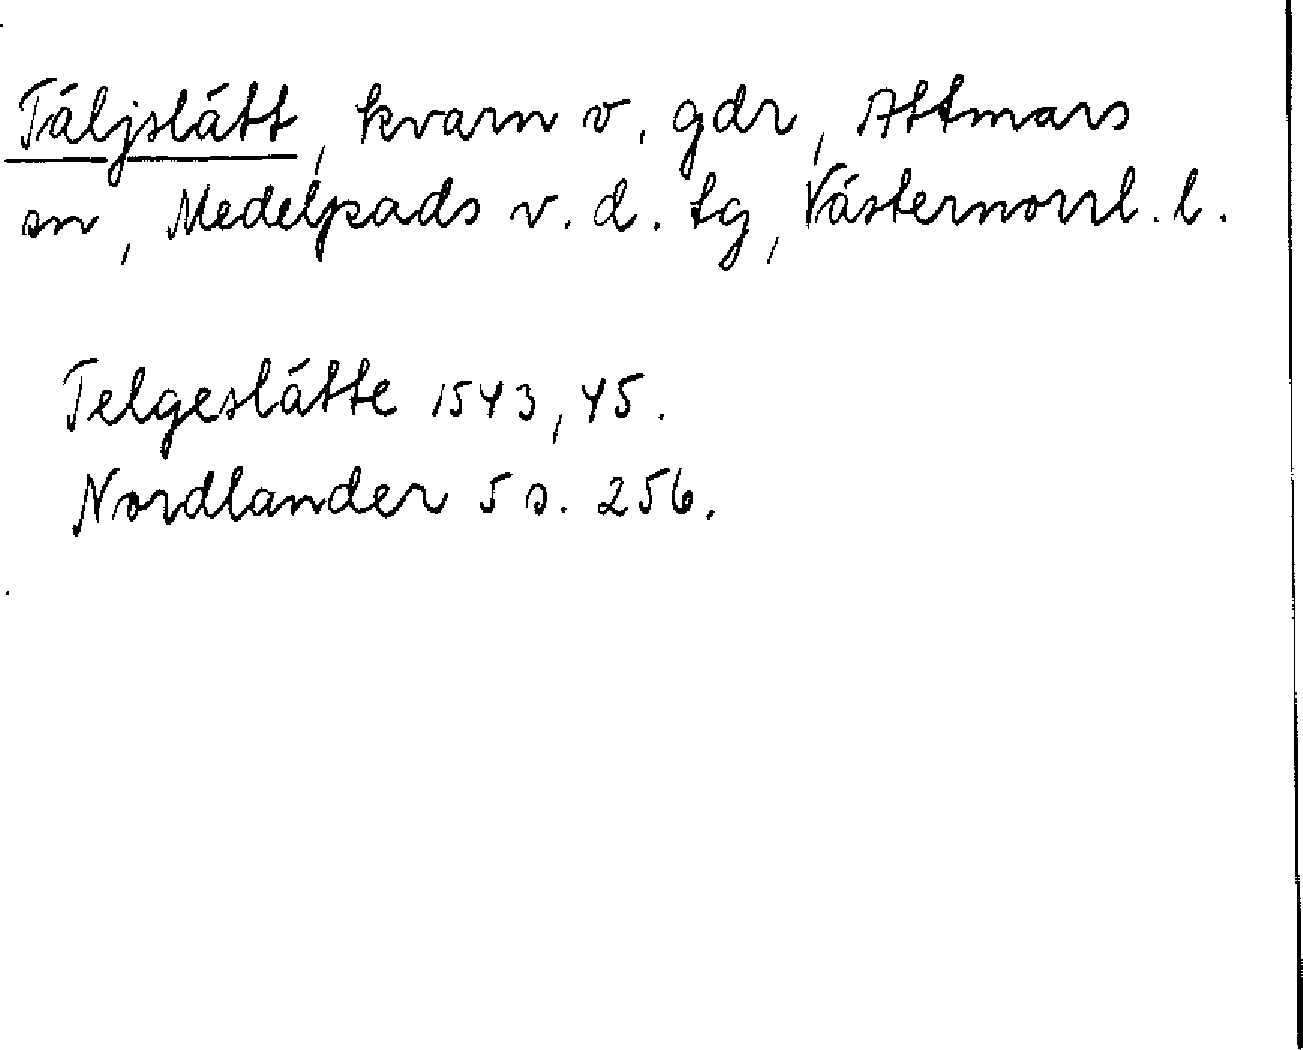 Täljslätt, kvarn o. gdr, Attmars
sn, Medelpads v. d. tg, Västernorrl. l.
Telgeslätte 1543, 45.
Nordlander 5 s. 256.